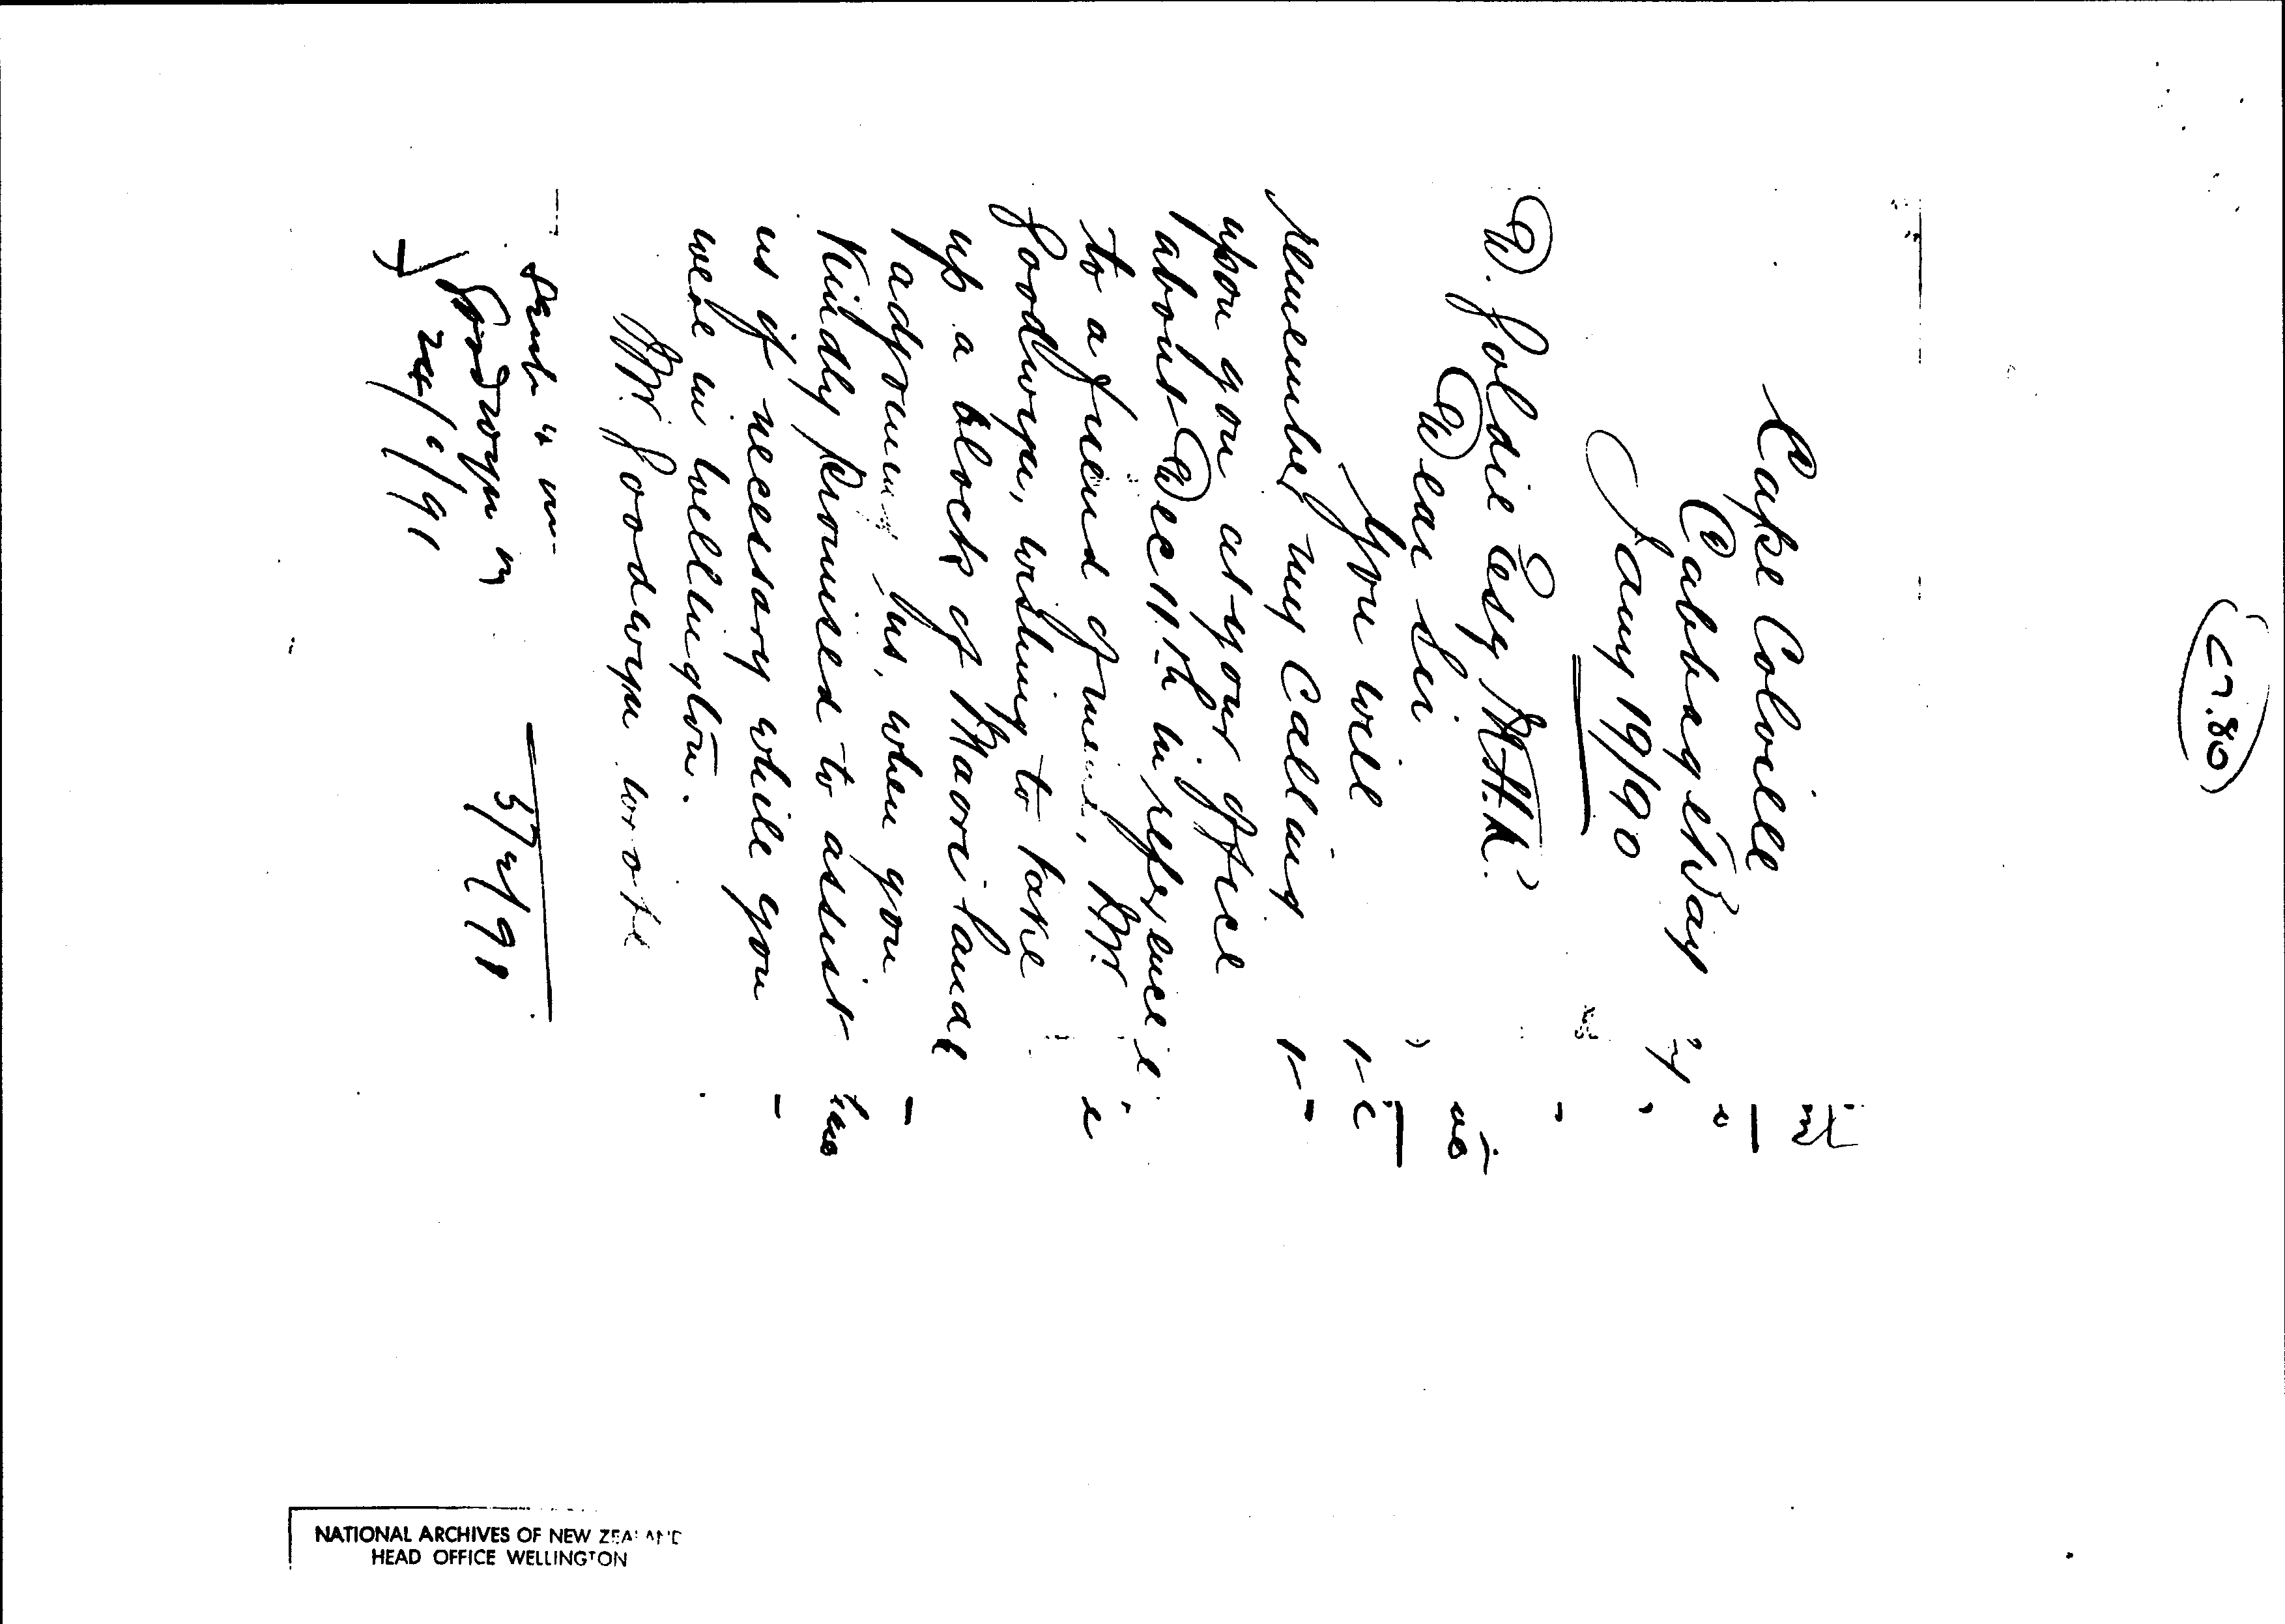 (27.80)
Cape Colville
Cabbage Bay
Jany 19/90
D. Goldie Esq M.H.R.
Dear Sir
You will
remember my Calling
upon you at your office
about Dec 11th in reference
to a friend of mine, Mr
Goodwyn, wishing to take
up a block of Maori Lands
adjoining his, when you
Kindly promised to assist
us if necessary while you
were in Wellington.
Mr Goodwyn wrote
Goodwyn
5/2/91
NATIONAL ARCHIVES OF NEW ZEALAND
HEAD OFFICE WELLINGTON